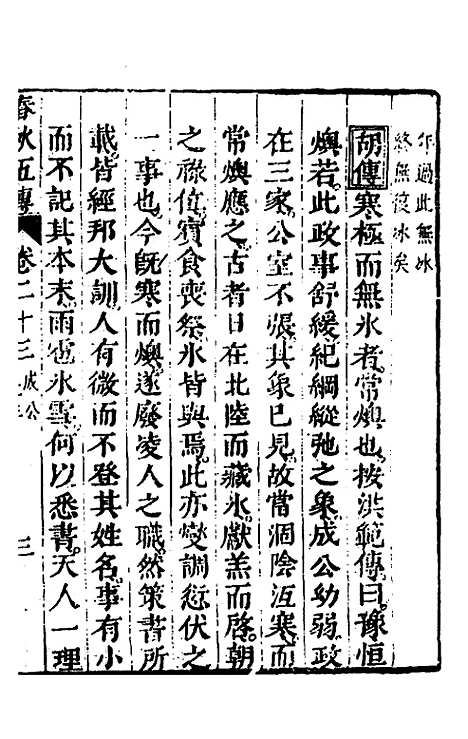 年過此無冰
終無復冰矣
胡傳寒極而無氷者常燠也按洪範傳曰豫恒
燠若此政事舒緩紀綱縱弛之象成公幼弱政
在三家公室不張其象巳見故當涸陰沍寒而
常燠應之古者日在北陸而藏氷獻羔而啓朝
之祿位賓食喪祭氷皆與焉此亦燮調愆伏之
一事也今旣寒而燠遂廢凌人之職然策書所
載皆經邦大訓人有微而不登其姓名事有小
而不記其本末雨雹氷雪何以悉書天人一理
春秋五傳 卷二十三 成公 三